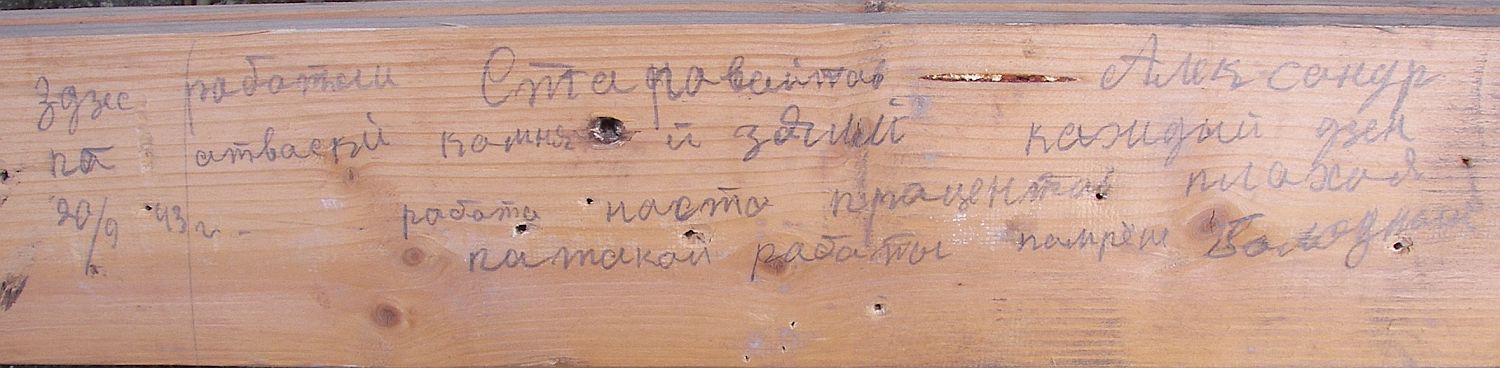 Здзес работали Старавойтав — Александр
па атваски камня й зямлй каждый дзен
20/9 43 г. - работа наста працентав плахая
патакой работы памрёш